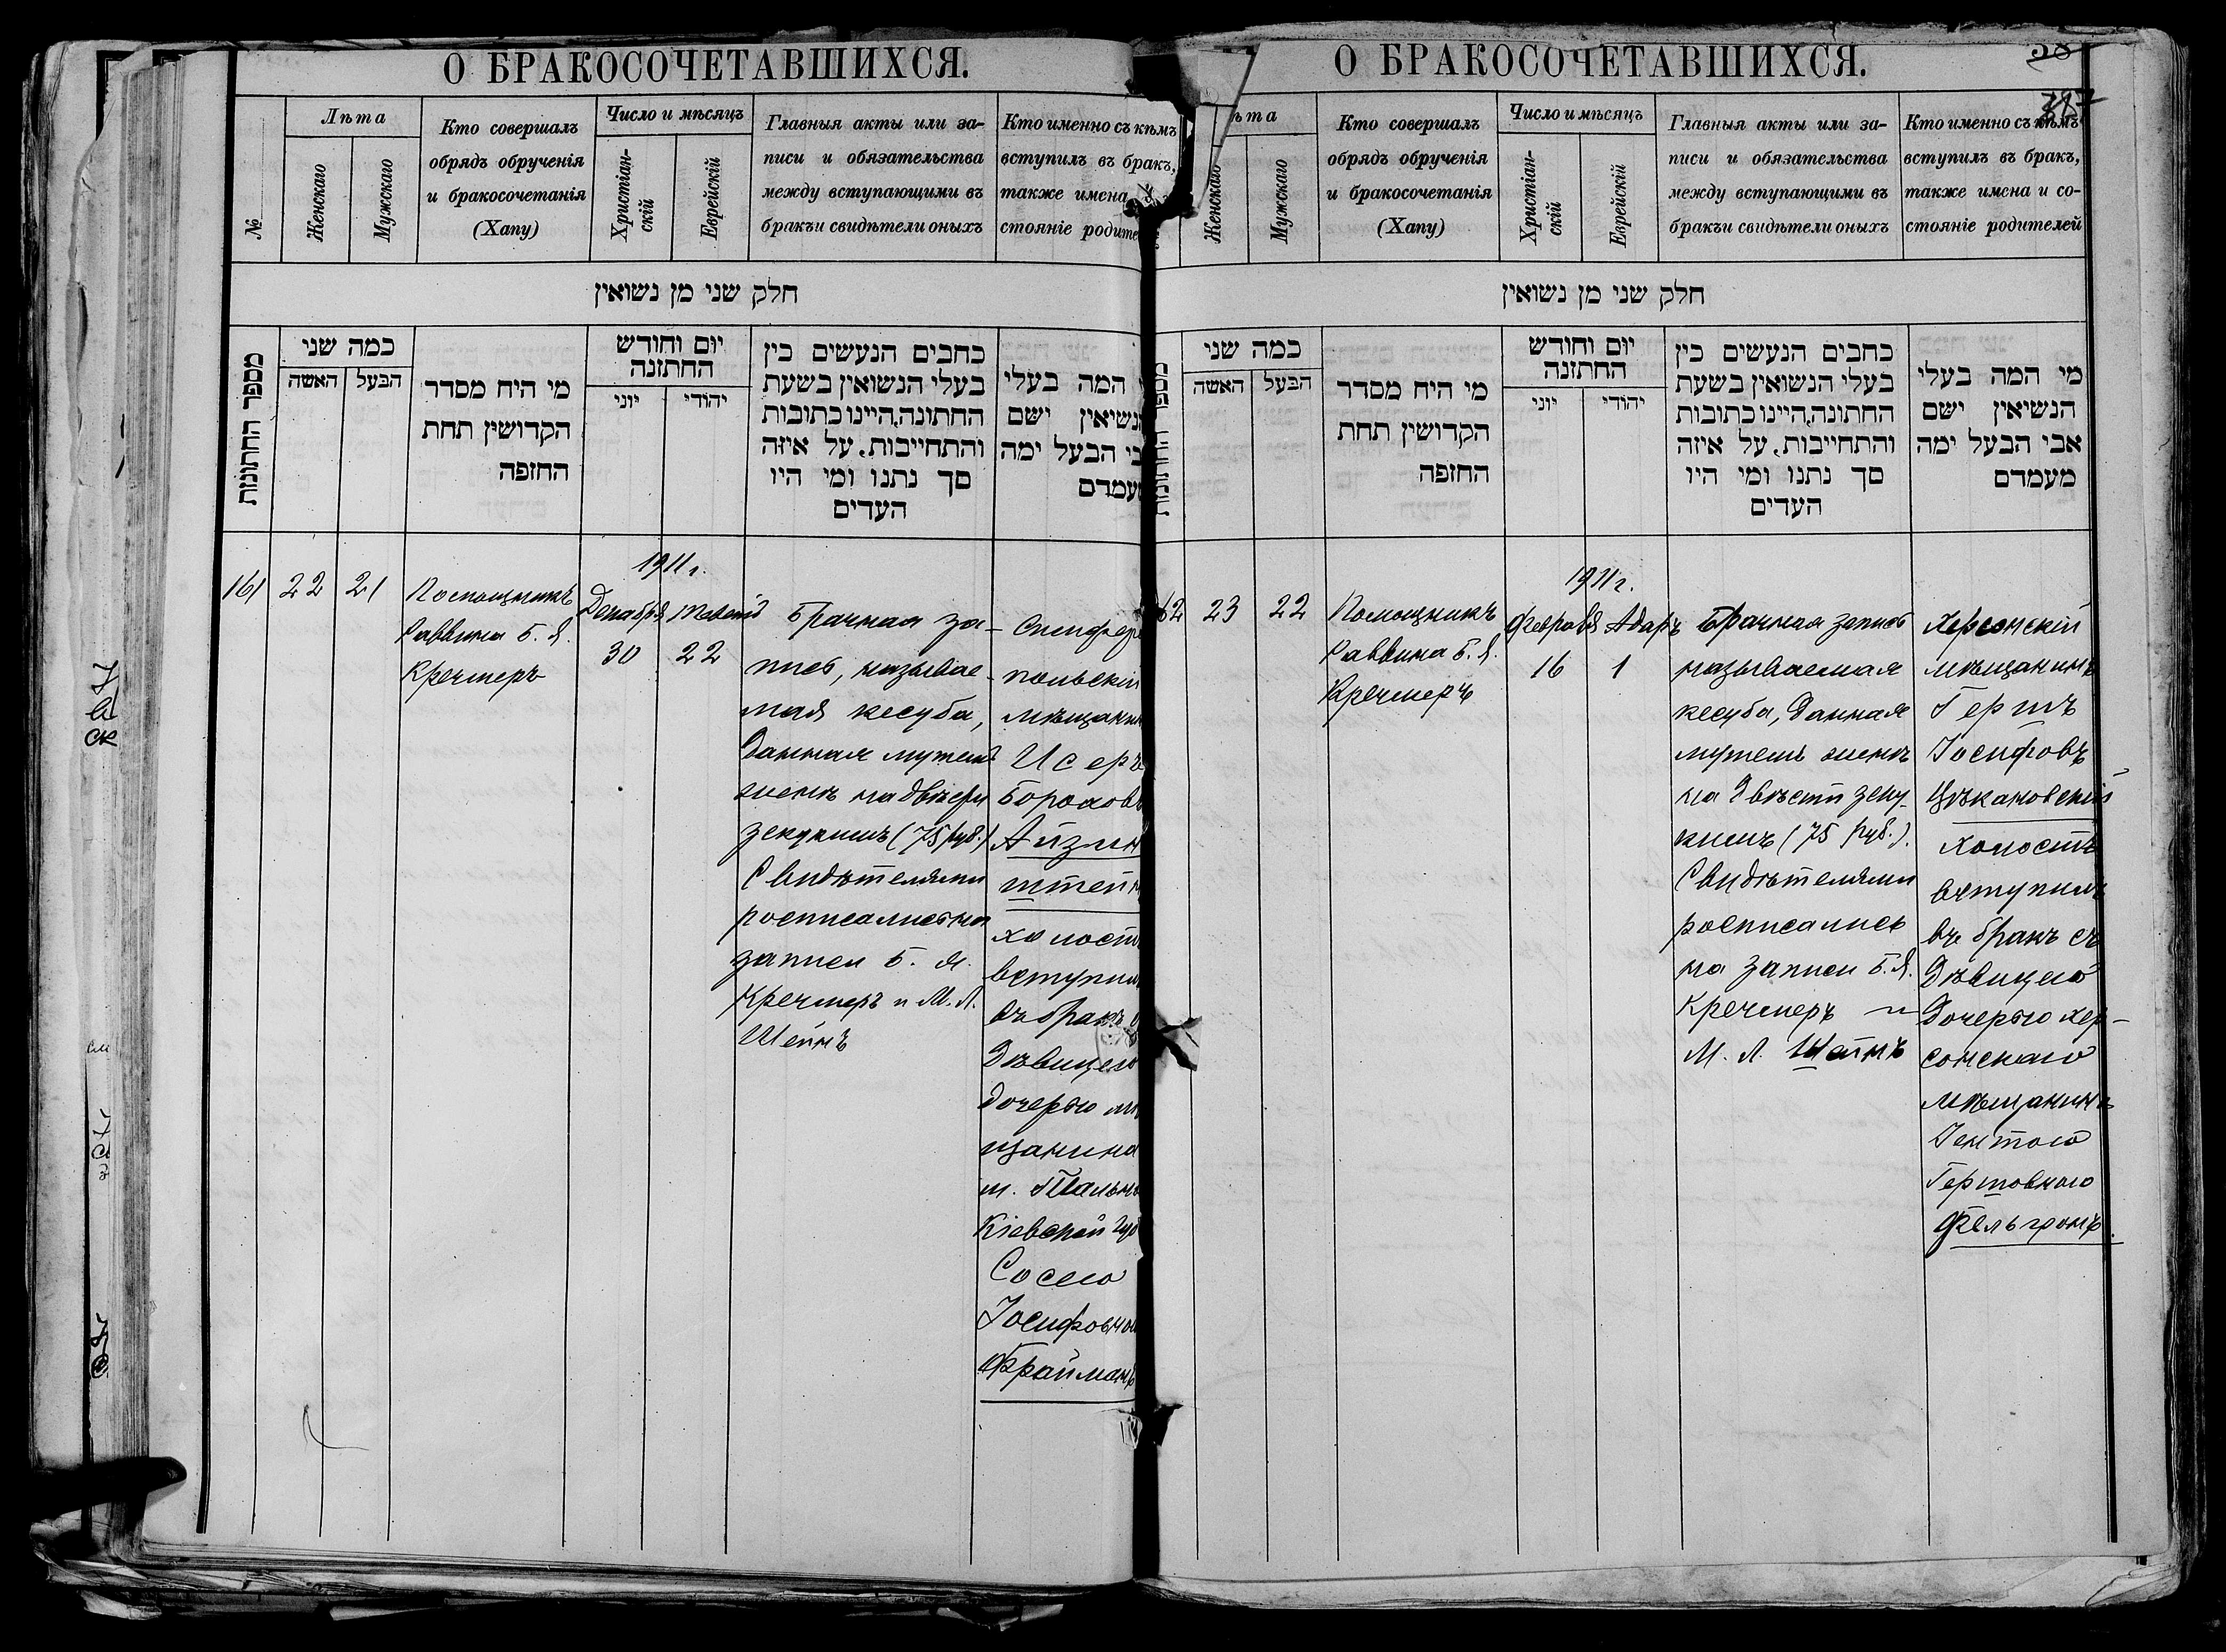 О БРАКОСОЧЕТАВШИХСЯ.
№
Лѣта
Женскаго
Мужскаго
Кто совершалъ
обрядъ обрученія
и бракосочетанія
(Хапу)
Число и мѣсяцъ
Христіан-
скій
Еврейскій
Главныя акты или за-
писи и обязательства
между вступающими въ
бракъ и свидѣтели оныхъ
Кто именно съ кѣмъ
вступилъ въ бракъ,
также имена
стояніе родите
חלק שני מן נשואין
מספר החתונות
כמה שני
האשה
הבעל
מי היח מסדר
הקדושין תחת
החופה
יום וחודש
החתונה
יוני
יהודי
כתבים הנעשים בין
בעלי הנשואין בשעת
החתונה, היינו כתובות
והתחייבות, על איזה
סך נתנו ומי היו
העדים
המה בעלי
הנשיאין ישם
אבי הבעל ימה
מעמדם
161
22
21
Помощникъ
Раввина Б. Я.
Кречмеръ
1911 г.
Декабря
30
Теветъ
22
Брачная за-
пись, называе-
мая кесуба,
данная мужемъ
женѣ на двѣсти
зекукимъ (75 руб.)
Свидѣтелями
росписались на
записи Б. Я.
Кречмеръ и М. Л.
Шейнъ
Симфера
польскій
мѣщанин
Исеръ
Бороховъ
Айзин
штейн
холостъ
вступил
въ бракъ
дѣвицею
дочерью мѣ
щанина
м. Тально
Кіевской губ
Сосею
Іосифовною
Фрайманъ
О БРАКОСОЧЕТАВШИХСЯ.
38
387
ѣта
Женскаго
Мужскаго
Кто совершалъ
обрядъ обрученія
и бракосочетанія
(Хапу)
Число и мѣсяцъ
Христіан-
скій
Еврейскій
Главныя акты или за-
писи и обязательства
между вступающими въ
бракъ и свидѣтели оныхъ
Кто именно съ кѣмъ
вступилъ въ бракъ,
также имена и со-
стояніе родителей
חלק שני מן נשואין
כמה שני
האשה
הבעל
מי היח מסדר
הקדושין תחת
החופה
יום וחודש
החתונה
יוני
יהודי
כתבים הנעשים בין
בעלי הנשואין בשעת
החתונה, היינו כתובות
והתחייבות, על איזה
סך נתנו ומי היו
העדים
מי המה בעלי
הנשיאין ישם
אבי הבעל ימה
מעמדם
62
23
22
Помощникъ
Раввина Б. Я.
Кречмеръ
1911 г.
Февраля
16
Адаръ
1
Брачная запись
называемая
кесуба, данная
мужемъ женѣ
на двѣсти зеку-
кимъ (75 руб.).
Свидѣтелями
росписались
на записи Б. Я.
Кречмеръ и
М. Л. Шейнъ
Херсонскій
мѣщанинъ
Гершъ
Іосифовъ
Цѣкановскій
холостъ
вступилъ
въ бракъ съ
дѣвицею
дочерью хер-
сонскаго
мѣщанина
Гентою
Гершовною
Фельгонъ.